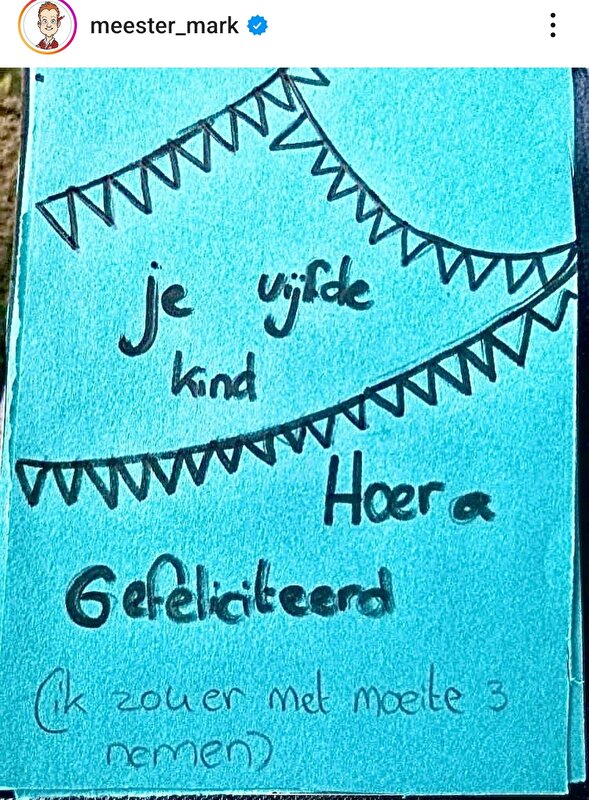 meester_mark
je vijfde
kind
Hoera
Gefeliciteerd
(ik zou er met moeite 3
nemen)